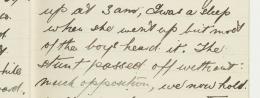 up at 3 am, I was a sleep
co. when she went up but most
of the boys heard it. The
while stunt passed off without
much opposition, we now hold